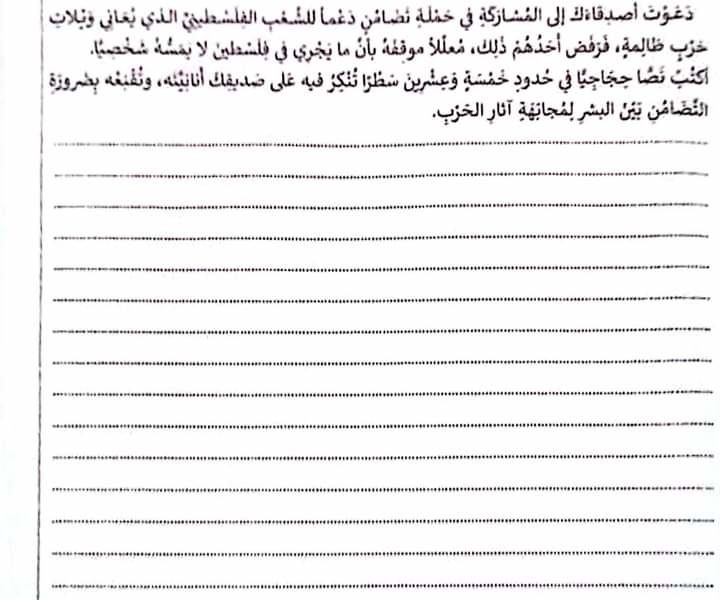 دَعَوْتَ أصدِقاءَكَ إلى المُشارَكَةِ في حَمْلَةِ تَضَامُنٍ دَعْماً للشَّعْبِ الفِلَسْطينِيِّ الذي يُعَانِي وَيْلاتِ
حَرْبٍ ظَالِمةٍ، فَرَفَضَ أحَدُهُمْ ذَلِكَ، مُعلِّلاً موقِفَهُ بأنَّ ما يَجْرِي في فِلَسْطينَ لا يمَسُّهُ شَخْصِيًّا.
أكتُبْ نَصًّا حِجَاجِيًّا في حُدودِ خَمْسَةٍ وَعِشْرينَ سَطْرًا تُنْكِرُ فيه عَلى صَديقِكَ أنانِيَّتَه، وتُقْنِعُه بِضَرورَةِ
التَّضَامُنِ بَيْنَ البشرِ لِمُجابَهَةِ آثارِ الحَرْبِ.